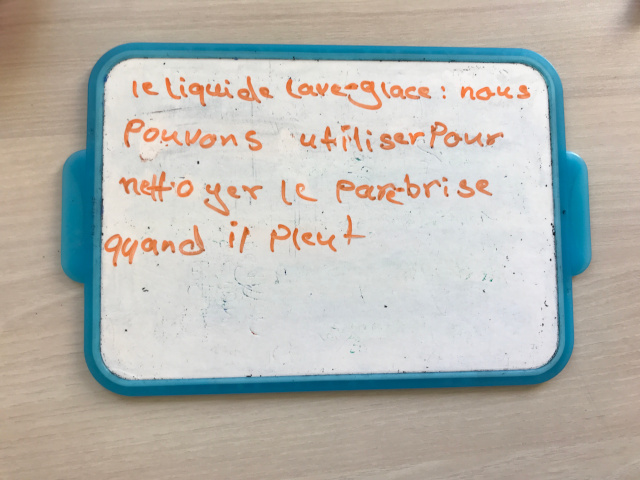 le liquide lave-glace : nous
Pouvons utiliser Pour
nettoyer le pare-brise
quand il pleut